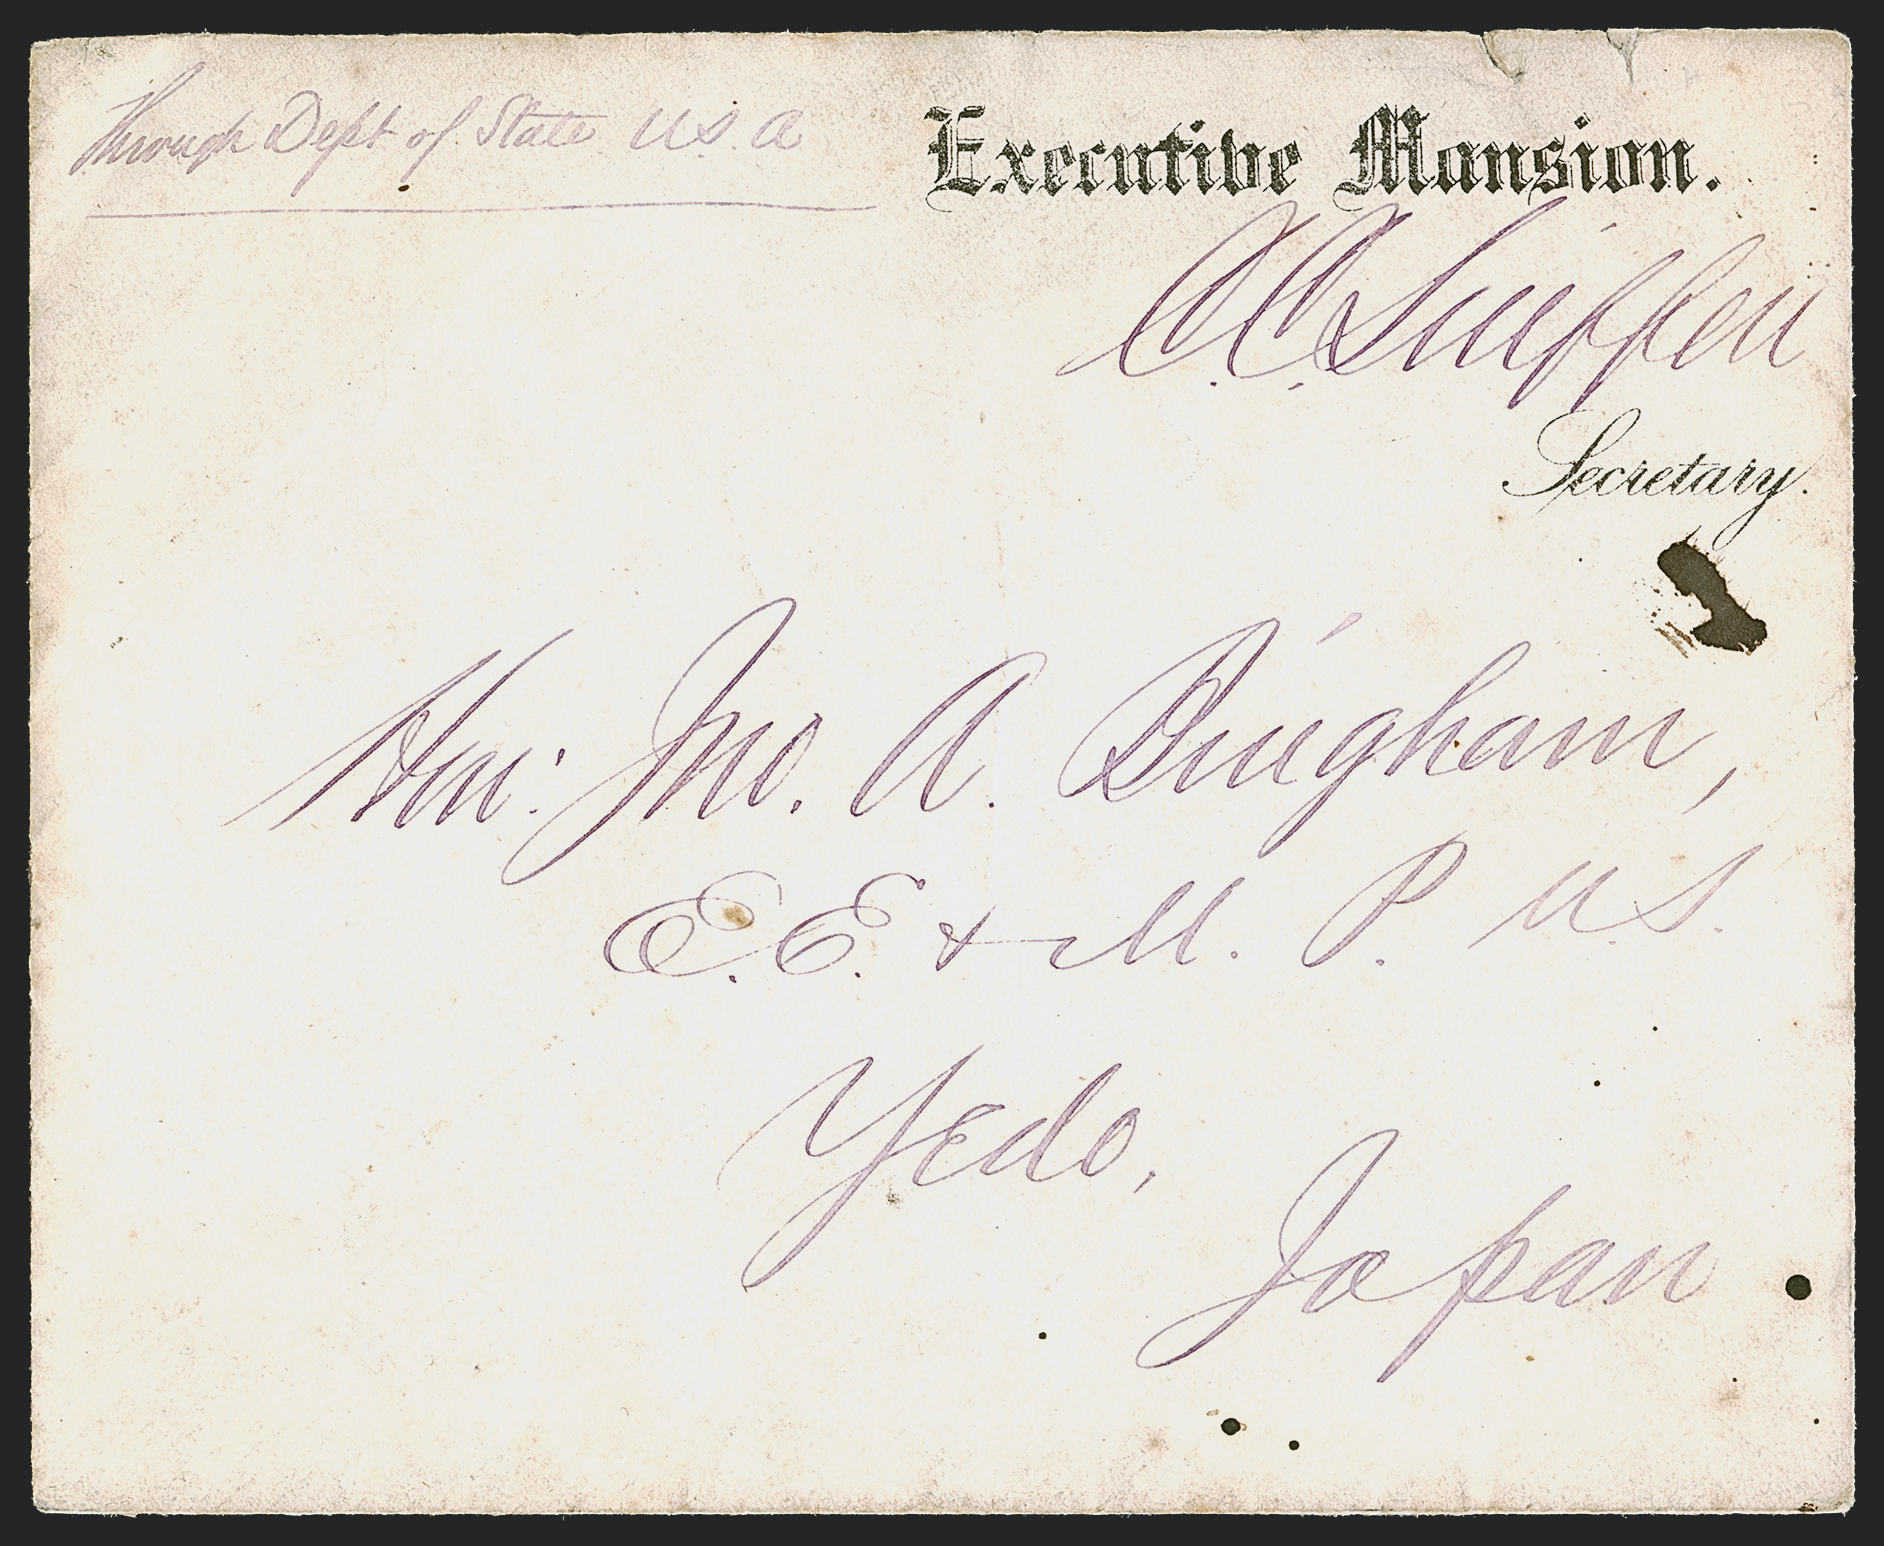 Through Dept of State U.S.A
Executive Mansion.
C.C. Sniffen
Secretary.
Hon: Jno. A. Bingham,
E.E. & M.P. U.S.
Yedo,
Japan